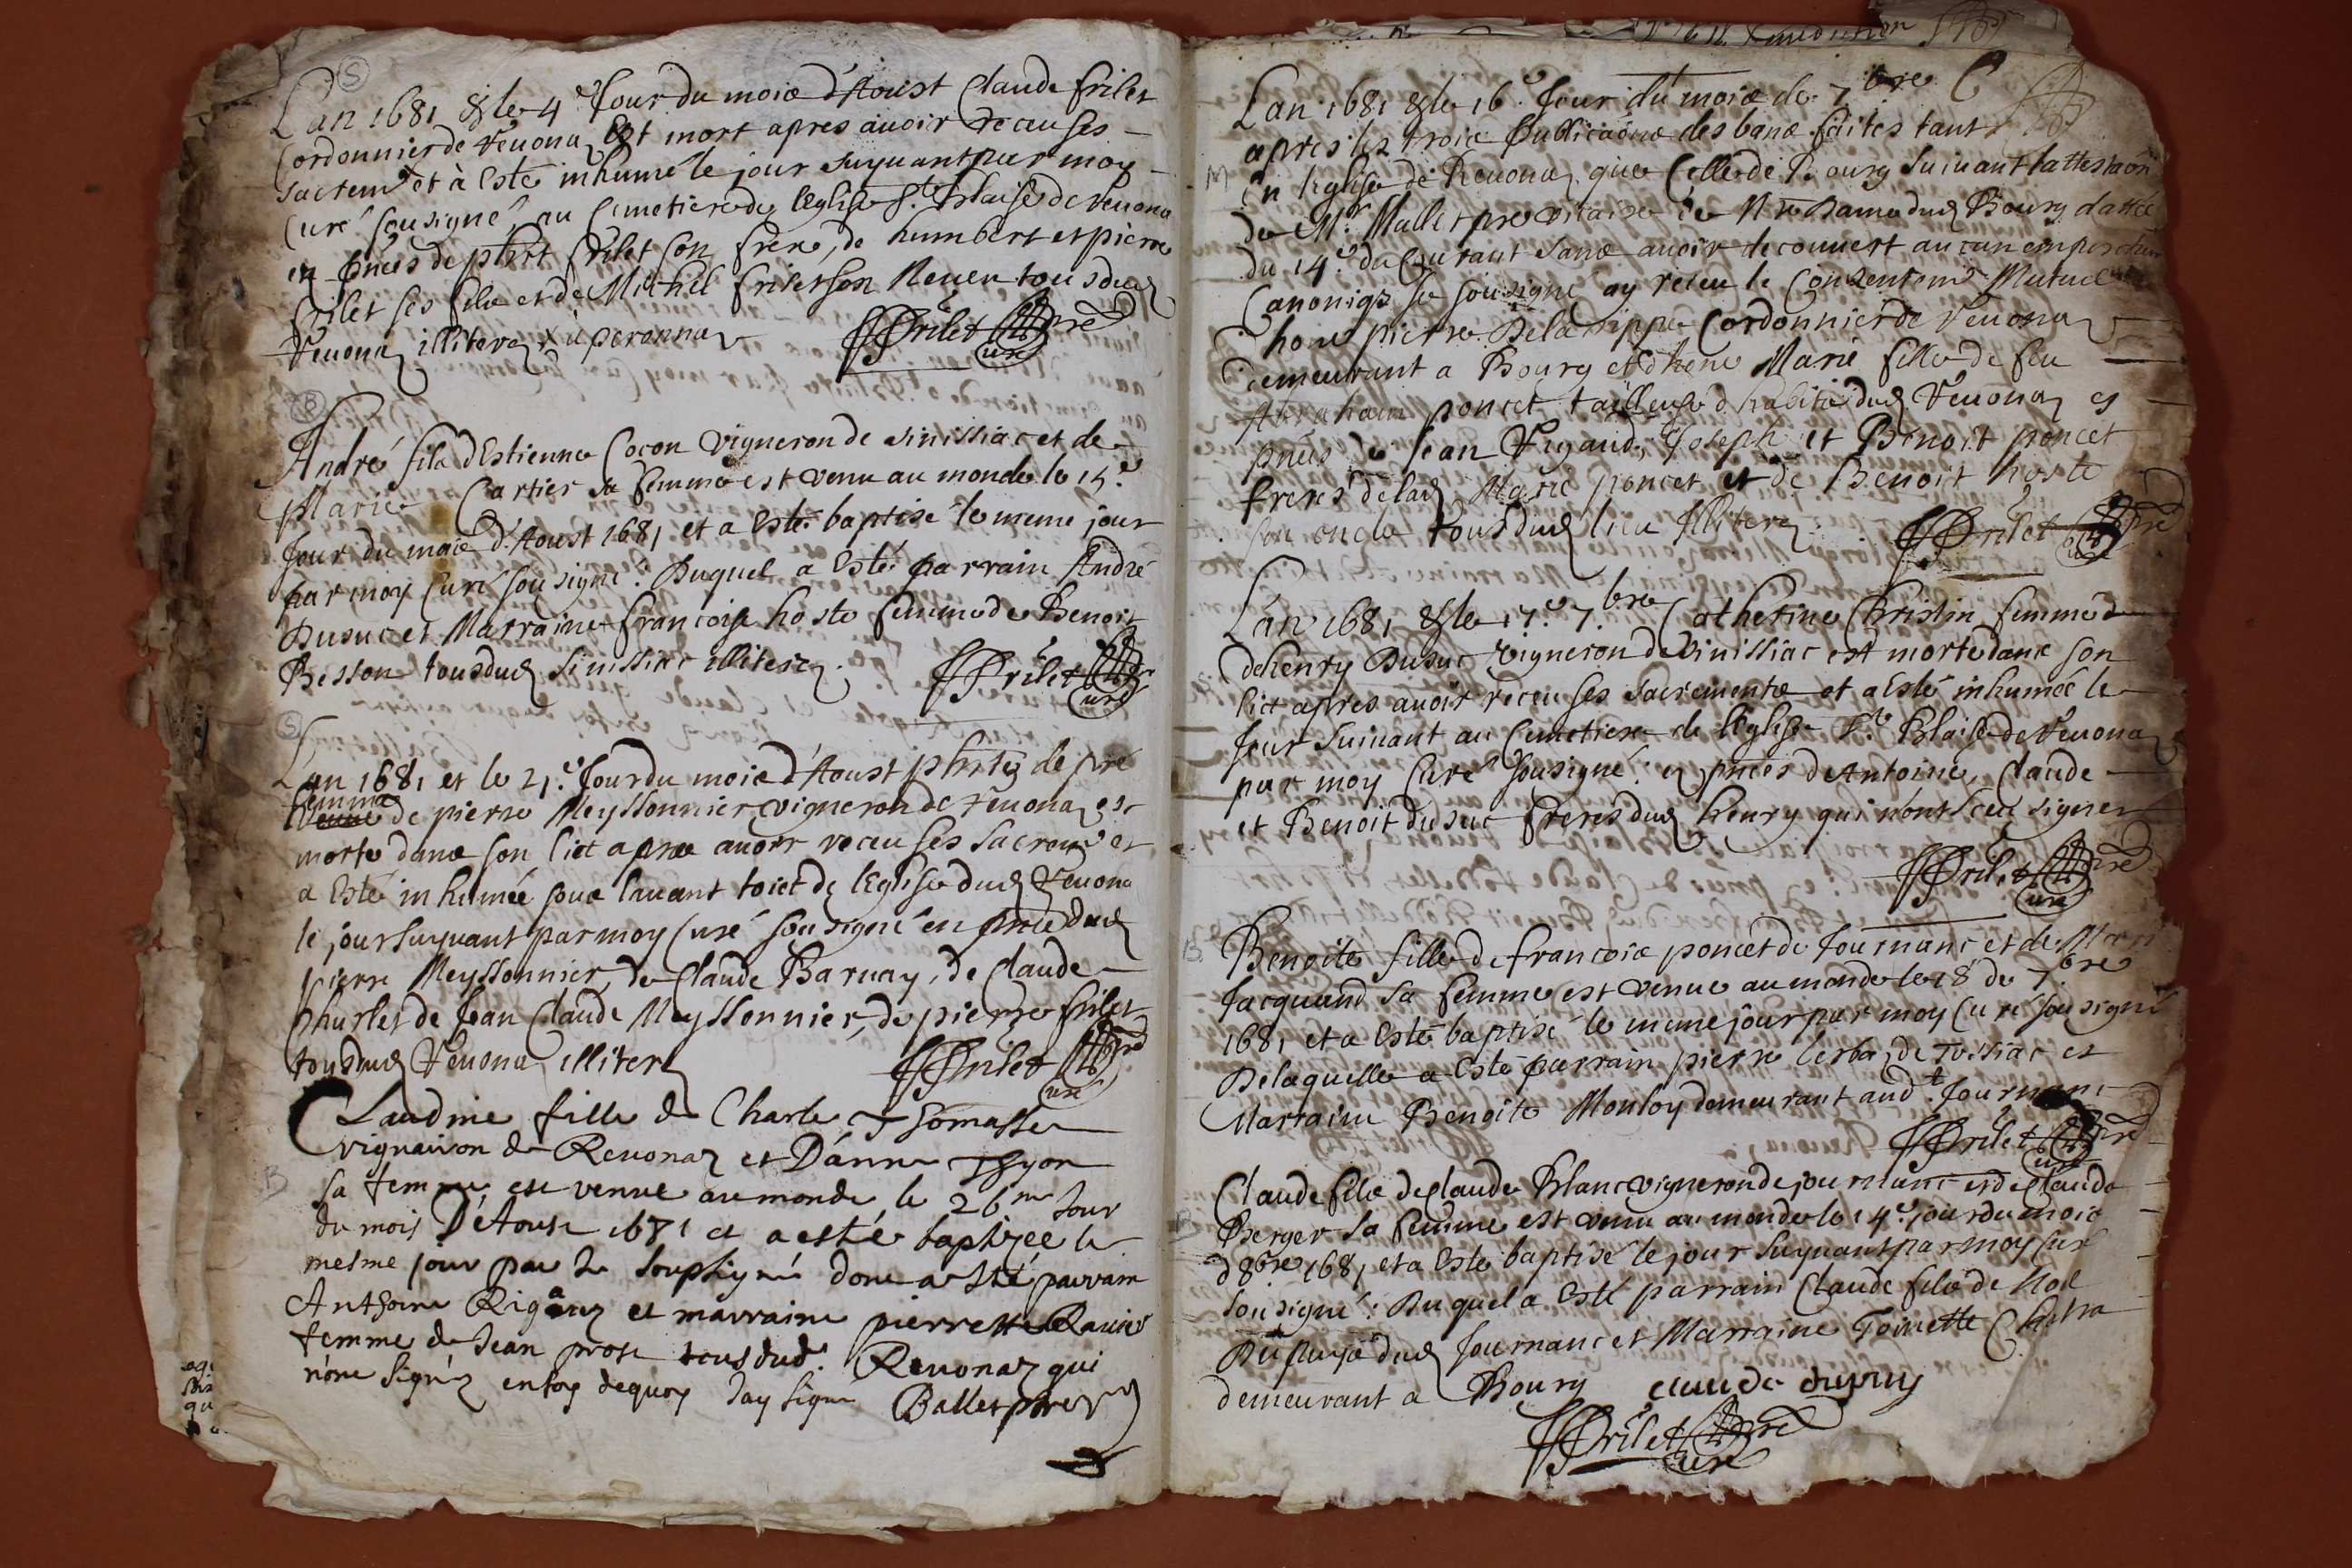 S
L'an 1681 & le 4e Jour du mois d'Aoust Claude frilet
Cordonnier de Reuona est mort apres auoir receu ses
sacrem et à Esté inhumé le jour suyuant par moy
Curé sousigné au Cimetiere de leglise St Blaise de Reuona
en pnces de phbt frilet son frere, de humbert et pierre
frilet ses fils et de Michel frilet son Neueu tous dud
Reuona illiterez
FFrilet pre
curé
B
André fils d'Estienne Cocon vigneron de sinissiac et de
Marie Cartier sa femme est venu au monde le 15e
Jour du mois d'Aoust 1681 et a Esté baptisé le meme jour
par moy Curé sousigné: Duquel a Esté parrain André
Dusuc et Marraine francoise hoste femme de Benoit
Besson tous dud sinissiac illiterez
FFrilet pre
curé
S
L'an 1681 et le 21e Jour du mois d'Aoust phbte de pré
femme
de pierre Meyssonnier vigneron de Reuonaz est
morte dans son lict apres auoir receu ses sacrem et
a Esté inhumée sous lauant toict de leglise dud Reuona
le jour suyuant par moy Curé sousigné en pnce dud
pierre Meyssonnier, de Claude Baruay, de Claude
Churlet de Jean Claude Meyssonnier, de pierre frilet
tous dud Reuona illiter
FFrilet pre
curé
B
Claudine fille de Charle Thomasse
vigneiron de Reuonaz et D'anne Thyon
sa femme est venue au monde le 26me Jour
du mois D'Aoust 1681 et a esté baptizée le
mesme jour par le soubsigné dont a esté parrain
Anthoine Rigaux et marraine pierrette Rauier
femme de Jean prost tous dud. Reuonaz qui
n'ont signéz enfoy dequoy Jay signé Ballet pbre
M
L'an 1681 & le 16e Jour du mois de 7bre
apres les trois Publicaons des bans faites tant
En leglise de Reuonaz que Celle de Bourg suiuant lattestaon
de Mr Mallet pre vicaire de Nre Dame dud Bourg dattée
du 14e du Courant sans auoir decouuert aucun empeschem
Canonique Je sousigné ay receu le Consentem Mutuel
d'hone pierre Delarippe Cordonnier de Reuona
demeurant a Bourg et d'hone Marie fille de feu
Abraham poncet tailleur d'habits dud Reuonaz es
pnces de Jean Rigaud, Joseph et Benoit poncet
freres de lad Marie poncet et de Benoit hoste
son oncle tous dud lieu Illiterez
FFrilet pre
curé
L'an 1681 & le 17e 7bre Catherine Christin femme d
de henry Dusuc vigneron de sinissiac est morte dans son
lict apres auoir receu ses sacrements et a Esté inhumée le
Jour suiuant au Cimetiere de leglise St Blaise de Reuona
par moy Curé sousigné: es pnces d'Antoine, Claude
et Benoit dusuc freres dud henry qui n'ont sceu signer
FFrilet pre
curé
B
Benoite fille de francois poncet de Journanc et de Marie
Jacquand sa femme est venue au monde le 18 de 7bre
1681 et a Esté baptisé le meme jour par moy Curé sousigné
De laquelle a Esté parrain pierre Cerba de Tossiac et
Marraine Benoite Monloy demeurant aud.t Journanc
FFrilet pre
curé
B
Claude fils de Claude Blanc vigneron de journanc et de Claude
Berger sa femme est venu au monde le 14e jour du mois
d 8bre 1681 et a Esté baptisé le jour suyuant par moy Curé
sousigné: Duquel a Esté parrain Claude fils de Noel
Dupuys dud Journanc et Marraine Toinette
demeurant a Bourg claude dupuy
FFrilet pre
curé